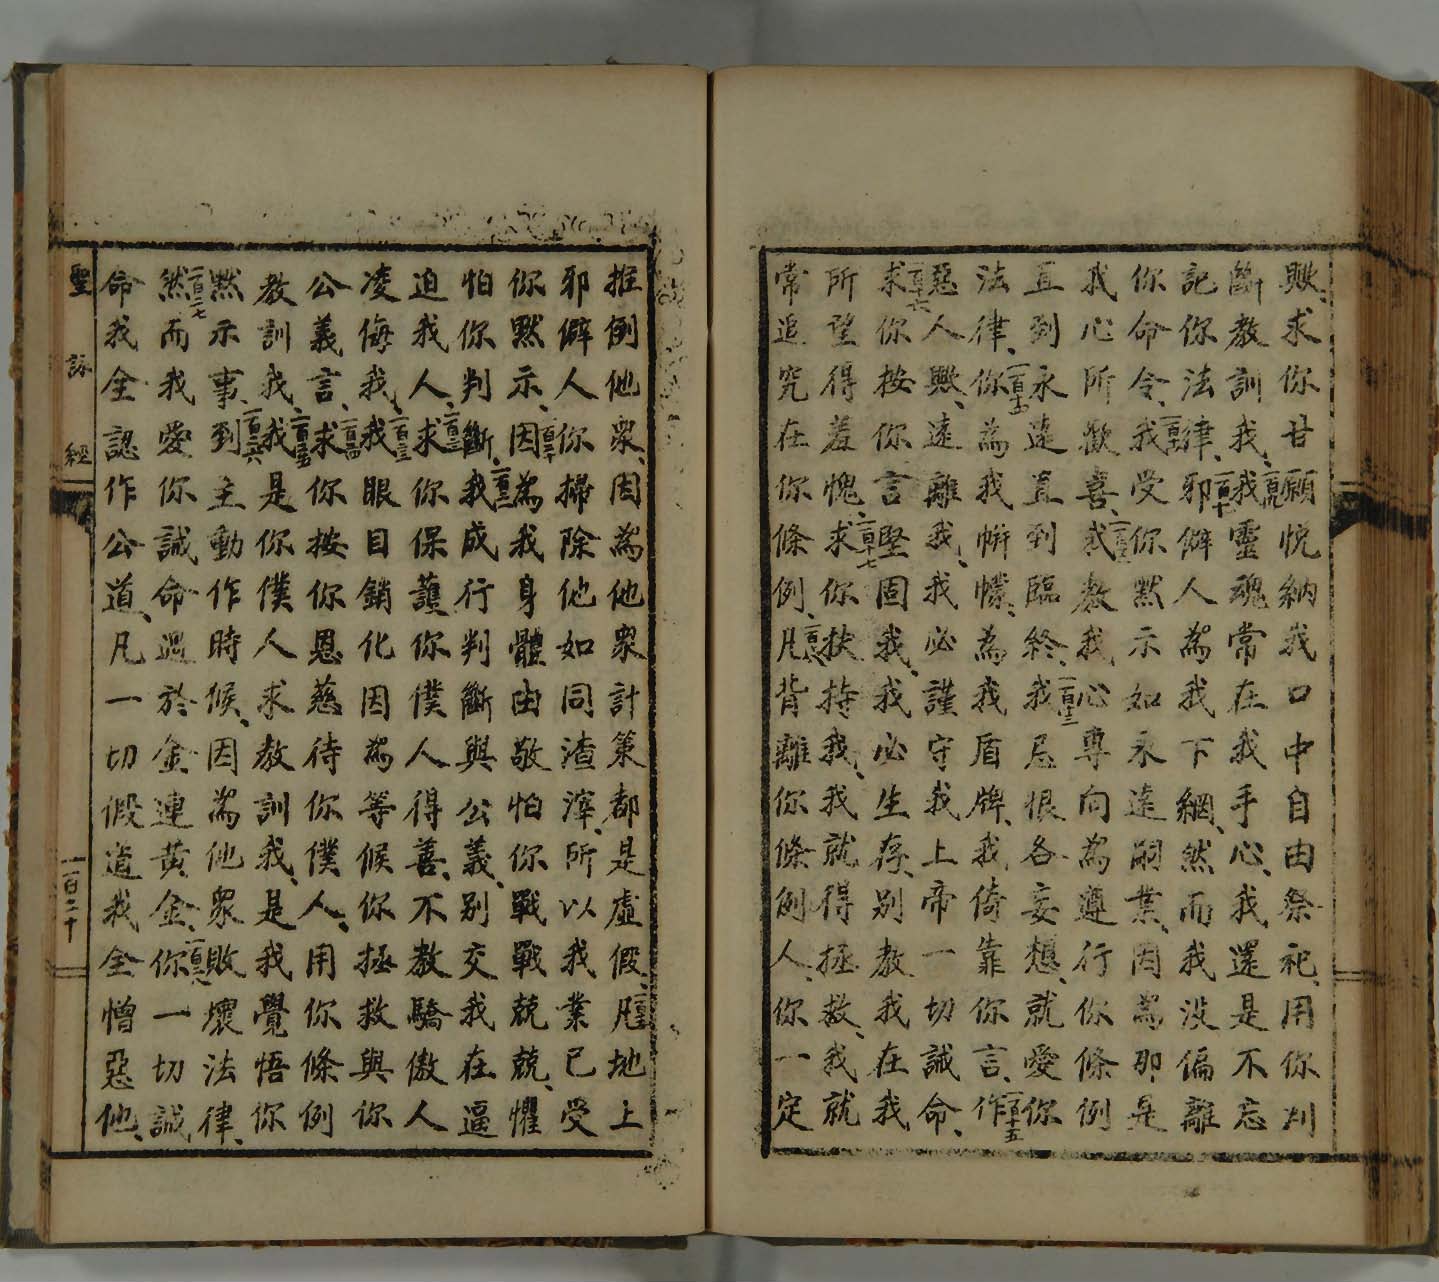 歟、求你甘願悅納我口中自由祭祀、用你刈
斷教訓我、一百九我靈魂常在我手心、我還是不忘
記你法律、一百十邪僻人為我下網、然而我没偏離
你命令、一百十一我受你默示如永遠嗣業、因為那是
我心所歡喜、一百十二我教我心專向為遵行你條例
直到永遠直到臨終、一百十三我忌恨各妄想、就愛你
法律、一百十四你為我帡幪、為我盾牌、我倚靠你言、一百十五作
惡人歟、遠離我、我必謹守我上帝一切誡命、
一百十六求你按你言堅固我、我必生存、別教我在我
所望得羞愧、一百十七求你扶持我、我就得拯救、我就
常追究在你條例、一百十八凡背離你條例人、你一定
推例他衆、因為他衆計策都是虛假、一百十九凡地上
邪僻人你掃除他如同渣滓、所以我業已受
你默示、一百二十因為我身體由敬怕你戰戰兢兢、懼
怕你判斷、一百二一我成行判斷與公義、別交我在逼
迫我人、一百二二求你保護你僕人得善、不教驕傲人
凌侮我、一百二三我眼目銷化因為等候你拯救與你
公義言、一百二四求你按你恩慈待你僕人、用你條例
教訓我、一百二五我是你僕人求教訓我、是我覺悟你
黙示事、一百二六到主動作時候、因為他衆敗壞法律、
一百二七然而我愛你誡命過於金、連黄金、一百二八你一切誡
命我全認作公道、凡一切假道我全憎惡他、
聖詠經
一百二十